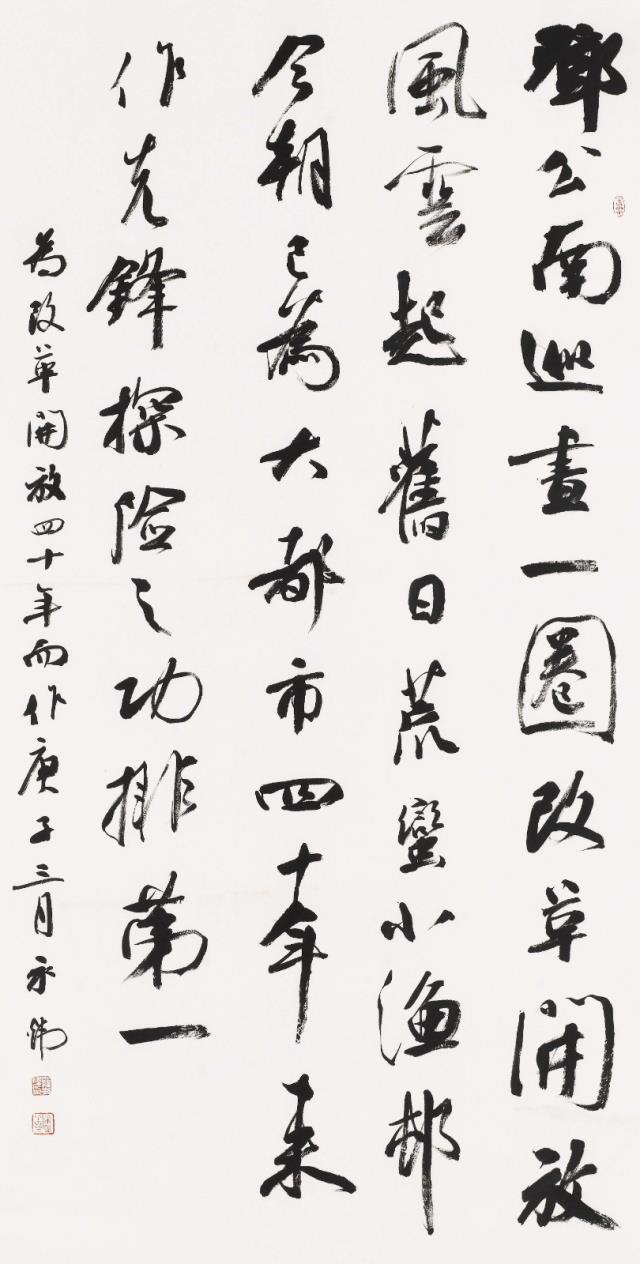 鄧公南巡畫一圈改革開放
風雲起舊日荒蠻小漁邨
今朝已為大都市四十年来
作先鋒探險之功排第一
為改革開放四十年而作庚子三月永